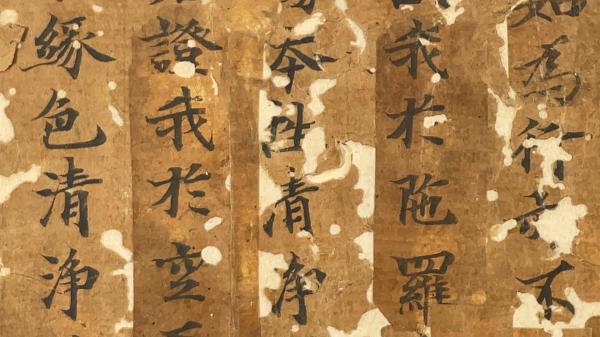 如為行不
我於陁羅
本性清淨
證我於空
緣色清淨